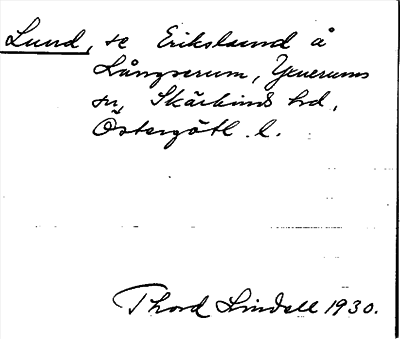 Lund, se Erikslund å
Långserum, Yxnerums
sn, Skärkinds hd,
Östergötl. l.
Thord Lindell 1930.